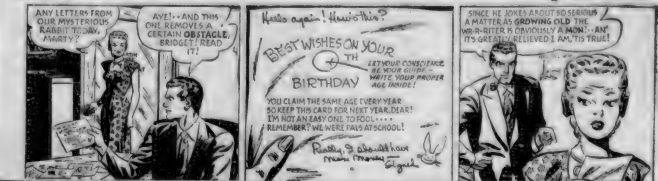 ANY LETTERS FROM
OUR MYSTERIOUS
RABBIT TODAY,
MARTY?
AYE!··AND THIS
ONE REMOVES A
CERTAIN OBSTACLE,
BRIDGET! READ
IT!
Hello again! How's this?
BEST WISHES ON YOUR
TH
BIRTHDAY
LET YOUR CONSCIENCE
BE YOUR GUIDE -
WRITE YOUR PROPER
AGE INSIDE!
YOU CLAIM THE SAME AGE EVERY YEAR
SO KEEP THIS CARD FOR NEXT YEAR, DEAR!
I'M NOT AN EASY ONE TO FOOL····
REMEMBER? WE WERE PALS AT SCHOOL!
Really, I should have
more money
SINCE HE JOKES ABOUT SO SERIOUS
A MATTER AS GROWING OLD THE
WR-R-RITER IS OBVIOUSLY A MON!··AN'
IT'S GREATLY RELIEVED I AM, 'TIS TRUE!